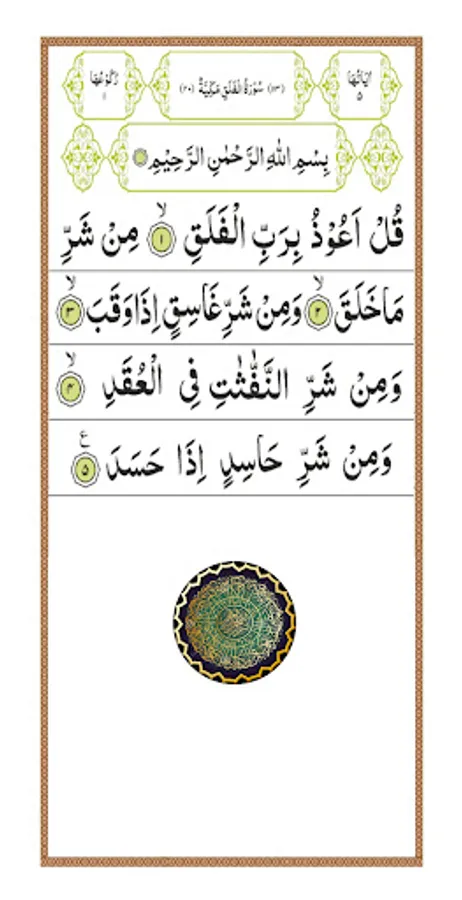 اٰيَاتُهَا ٥
(١١٣) سُوْرَةُ الْفَلَقِ مَكِّيَّةٌ (٢٠)
رُكُوْعُهَا ١
بِسْمِ اللهِ الرَّحْمٰنِ الرَّحِيْمِ
قُلْ اَعُوْذُ بِرَبِّ الْفَلَقِ ۙ ١ مِنْ شَرِّ
مَا خَلَقَ ۙ ٢ وَمِنْ شَرِّ غَاسِقٍ اِذَا وَقَبَ ۙ ٣
وَمِنْ شَرِّ النَّفّٰثٰتِ فِى الْعُقَدِ ۙ ٤
وَمِنْ شَرِّ حَاسِدٍ اِذَا حَسَدَ ٥ ع